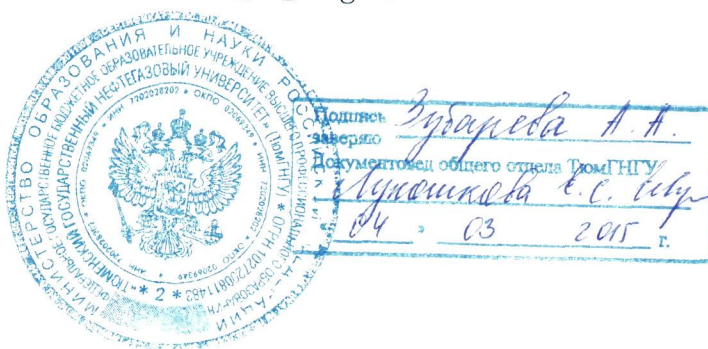 МИНИСТЕРСТВО ОБРАЗОВАНИЯ И НАУКИ РОССИЙСКОЙ ФЕДЕРАЦИИ
ФЕДЕРАЛЬНОЕ ГОСУДАРСТВЕННОЕ БЮДЖЕТНОЕ ОБРАЗОВАТЕЛЬНОЕ УЧРЕЖДЕНИЕ ВЫСШЕГО ПРОФЕССИОНАЛЬНОГО ОБРАЗОВАНИЯ
"ТЮМЕНСКИЙ ГОСУДАРСТВЕННЫЙ НЕФТЕГАЗОВЫЙ УНИВЕРСИТЕТ" (ТюмГНГУ) * ОГРН 1027200811483
* ИНН 7202028202 * ОКПО 02069349 *
* 2 *
Подпись Зубарева А. А.
заверяю
Документовед общего отдела ТюмГНГУ
Лукошкова Е.С.
« 04 » 03 2015 г.